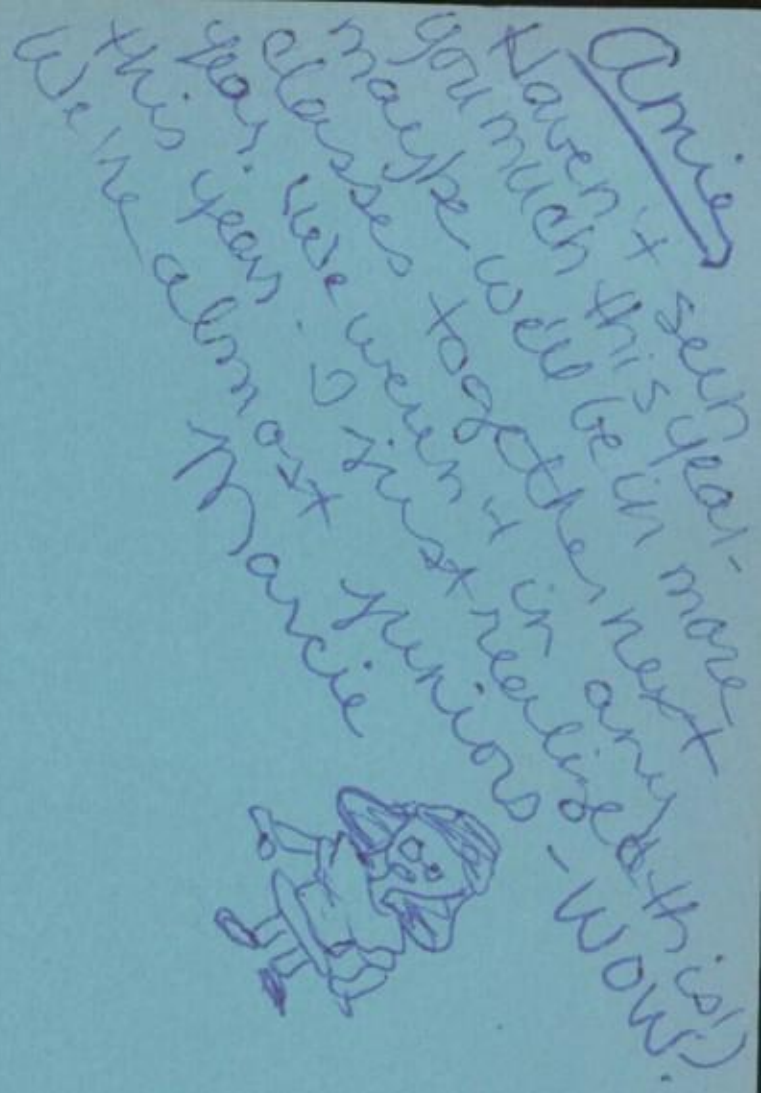 Amie
Haven't seen
you much this year -
maybe we'll be in more
classes together next
year. (We weren't in any
this year. I just realized this!)
We're almost juniors - WOW!
Marcie